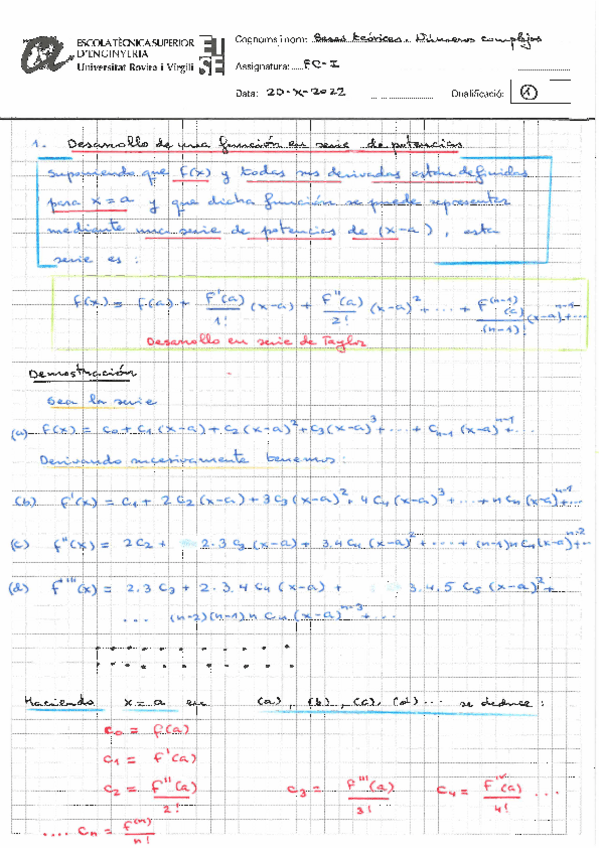 ESCOLA TÈCNICA SUPERIOR
D'ENGINYERIA
Universitat Rovira i Virgili
ET
SE
Cognoms i nom: Bases teóricas. Números complejos
Assignatura: FC-I
Data: 20-X-2022
Qualificació: 1
1. Desarrollo de una función en serie de potencias
Suponiendo que f(x) y todas sus derivadas estén definidas
para x = a y que dicha función se puede representar
mediante una serie de potencias de (x-a), esta
serie es:
f(x) = f(a) + F'(a)/1! (x-a) + F''(a)/2! (x-a)² + ... + F^(n-1)(a)/(n-1)! (x-a)^n-1 + ...
Desarrollo en serie de Taylor
Demostración
Sea la serie
(a) f(x) = c₀ + c₁(x-a) + c₂(x-a)² + c₃(x-a)³ + ... + c_n-1 (x-a)^n-1 + ...
Derivando sucesivamente tenemos:
(b) f'(x) = c₁ + 2c₂(x-a) + 3c₃(x-a)² + 4c₄(x-a)³ + ... + n cₙ(x-a)^n-1 + ...
(c) f''(x) = 2c₂ + 2.3c₃(x-a) + 3.4c₄(x-a)² + ... + (n-1)n cₙ(x-a)^n-2 + ...
(d) f'''(x) = 2.3 c₃ + 2.3.4c₄(x-a) + 3.4.5 c₅(x-a)² +
... (n-2)(n-1)n cₙ(x-a)^n-3 + ...
Haciendo x=a en (a), (b), (c), (d)... se deduce:
c₀ = f(a)
c₁ = f'(a)
c₂ = f''(a)/2! c₃ = f'''(a)/3! c₄ = F^IV(a)/4! ...
.... cₙ = f^(n)/n!